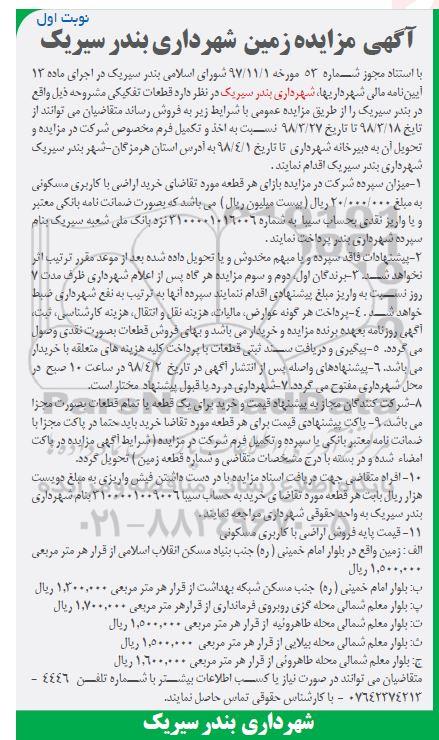 نوبت اول
آگهی مزایده زمین شهرداری بندر سیریک
با استناد مجوز شماره ۵۳ مورخه ۹۷/۱۱/۱ شورای اسلامی بندر سیریک در اجرای ماده ۱۳
آیین‌نامه مالی شهرداریها، شهرداری بندر سیریک در نظر دارد قطعات تفکیکی مشروحه ذیل واقع
در بندر سیریک را از طریق مزایده عمومی با شرایط زیر به فروش رساند متقاضیان می توانند از
تاریخ ۹۸/۳/۱۸ تا تاریخ ۹۸/۳/۲۷ نسبت به اخذ و تکمیل فرم مخصوص شرکت در مزایده و
تحویل آن به دبیرخانه شهرداری تا تاریخ ۹۸/۴/۱ به آدرس استان هرمزگان-شهر بندر سیریک
شهرداری بندر سیریک اقدام نمایند.
۱-میزان سپرده شرکت در مزایده بازای هر قطعه مورد تقاضای خرید اراضی با کاربری مسکونی
به مبلغ ۲۰/۰۰۰/۰۰۰ ریال (بیست میلیون ریال) می باشد که بصورت ضمانت نامه بانکی معتبر
و یا واریز نقدی بحساب سیبا به شماره ۳۱۰۰۰۰۱۰۱۶۰۰۶ نزد بانک ملی شعبه سیریک بنام
سپرده شهرداری بندر پرداخت نمایند.
۲-پیشنهادات فاقد سپرده و یا مبهم مخدوش و یا تحویل داده شده بعد از موعد مقرر ترتیب اثر
نخواهد شد. ۳-برندگان اول، دوم و سوم مزایده هر گاه پس از اعلام شهرداری ظرف مدت ۷
روز نسبت به واریز مبلغ پیشنهادی اقدام ننمایند سپرده آنها به ترتیب به نفع شهرداری ضبط
خواهد شد. ۴-پرداخت هر گونه عوارض، مالیات، هزینه نقل و انتقال، هزینه کارشناسی، ثبت،
آگهی روزنامه بعهده برنده مزایده و خریدار می باشد و بهای فروش قطعات بصورت نقدی وصول
می گردد. ۵-پیگیری و دریافت سند ثبتی قطعات با پرداخت کلیه هزینه های متعلقه با خریدار
می باشد. ۶-پیشنهادهای واصله پس از انتشار آگهی در تاریخ ۹۸/۴/۲ در ساعت ۱۰ صبح در
محل شهرداری مفتوح می گردد. ۷-شهرداری در رد یا قبول پیشنهاد مختار است.
۸-شرکت کنندگان مجاز به پیشنهاد قیمت و خرید برای یک قطعه یا تمام قطعات بصورت مجزا
می باشد. ۹-پاکت پیشنهادی قیمت برای هر قطعه مورد تقاضا خرید باید حتما در پاکت مجزا با
ضمانت نامه معتبر بانکی یا سپرده و تکمیل فرم شرکت در مزایده (شرایط آگهی مزایده در پاکت
امضاء شده و در بسته با درج مشخصات متقاضی و شماره قطعه زمین) تحویل گردد.
۱۰-افراد متقاضی جهت دریافت اسناد مزایده با در دست داشتن فیش واریزی به مبلغ دویست
هزار ریال بابت هر قطعه مورد تقاضای خرید به حساب سیبا ۳۱۰۰۰۰۱۰۰۹۰۰۶ بنام شهرداری
بندر سیریک به واحد حقوقی شهرداری مراجعه نمایند.
۱۱- قیمت پایه فروش اراضی با کاربری مسکونی
الف: زمین واقع در بلوار امام خمینی (ره) جنب بنیاد مسکن انقلاب اسلامی از قرار هر متر مربعی
۱,۵۰۰,۰۰۰ ریال
ب: بلوار امام خمینی (ره) جنب مسکن شبکه بهداشت از قرار هر متر مربعی ۱,۳۰۰,۰۰۰ ریال
پ: بلوار معلم شمالی محله گزی روبروی فرمانداری از قرارهر متر مربعی ۱,۷۰۰,۰۰۰ ریال
ت: بلوار معلم شمالی محله طاهروئیه از قرار هر متر مربعی ۱,۵۰۰,۰۰۰ ریال
ث: بلوار معلم شمالی محله بیلایی از قرار هر متر مربعی ۱,۵۰۰,۰۰۰ ریال
ج: بلوار معلم شمالی محله طاهرونی از قرار هر متر مربعی ۱,۶۰۰,۰۰۰ ریال
متقاضیان می توانند در صورت نیاز یا کسب اطلاعات بیشتر با شماره تلفن ۴۴۴۶ -
۰۷۶۴۲۳۷۴۲۱۳ - با کارشناس حقوقی تماس حاصل نمایند.
شهرداری بندر سیریک
ParsNamadData
۰۲۱-۸۸۳۴۹۶۷۰-۵